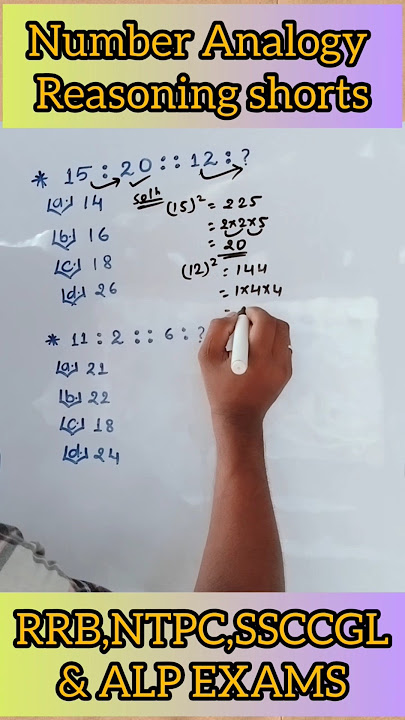 Number Analogy
Reasoning shorts
* 15 : 20 :: 12 : ?
(a) 14
(b) 16
(c) 18
(d) 26
Solⁿ
(15)² = 225
= 2×2×5
= 20
(12)² = 144
= 1×4×4
=
* 11 : 2 :: 6 : ?
(a) 21
(b) 22
(c) 18
(d) 24
RRB,NTPC,SSCCGL
& ALP EXAMS